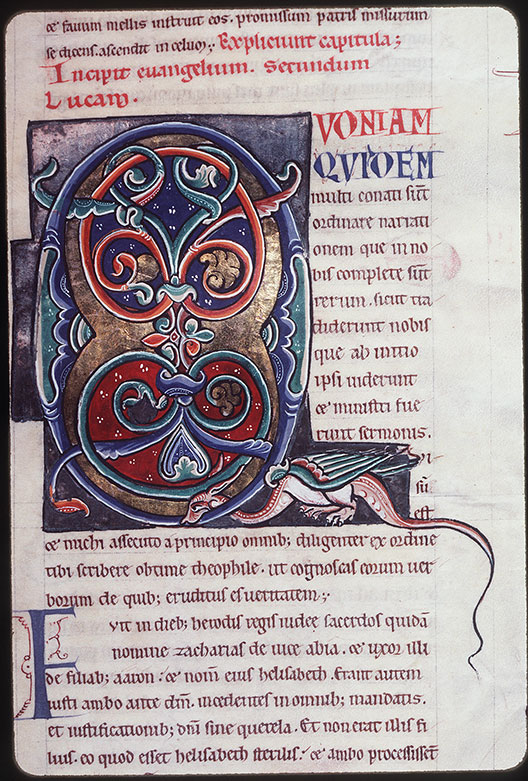 ꝫ fauum mellis instruit eos. promissum patris missurum
se dicens. ascendit in celum; Expliciunt capitula;
Incipit evangelium. Secundum
Lucam.
QVONIAM
QVIDEM
multi conati sūt
ordinare narrati
onem que in no
bis complete sūt
rerum. sicut tra
diderunt nobis
que ab initio
ipsi uiderunt
ꝫ ministri fue
runt sermonis.
Vi
sū
est
ꝫ michi assecuto a principio omnib; diligenter ex ordine
tibi scribere obtime theophile. ut cognoscas eorum uer
borum de quib; eruditus es ueritatem;
FVIT in dieb; herodis regis iudeę sacerdos quidā
nomine zacharias de uice abia. ꝫ uxor illi
de filiab; aaron: ꝫ nom̄ eius helisabeth. Erant autem
iusti ambo ante dm̄. incedentes in omnib; mandatis.
et iustificationib; dn̄i sine querela. Et non erat illis fi
lius. eo quod esset helisabeth sterilis: ꝫ ambo processissēt